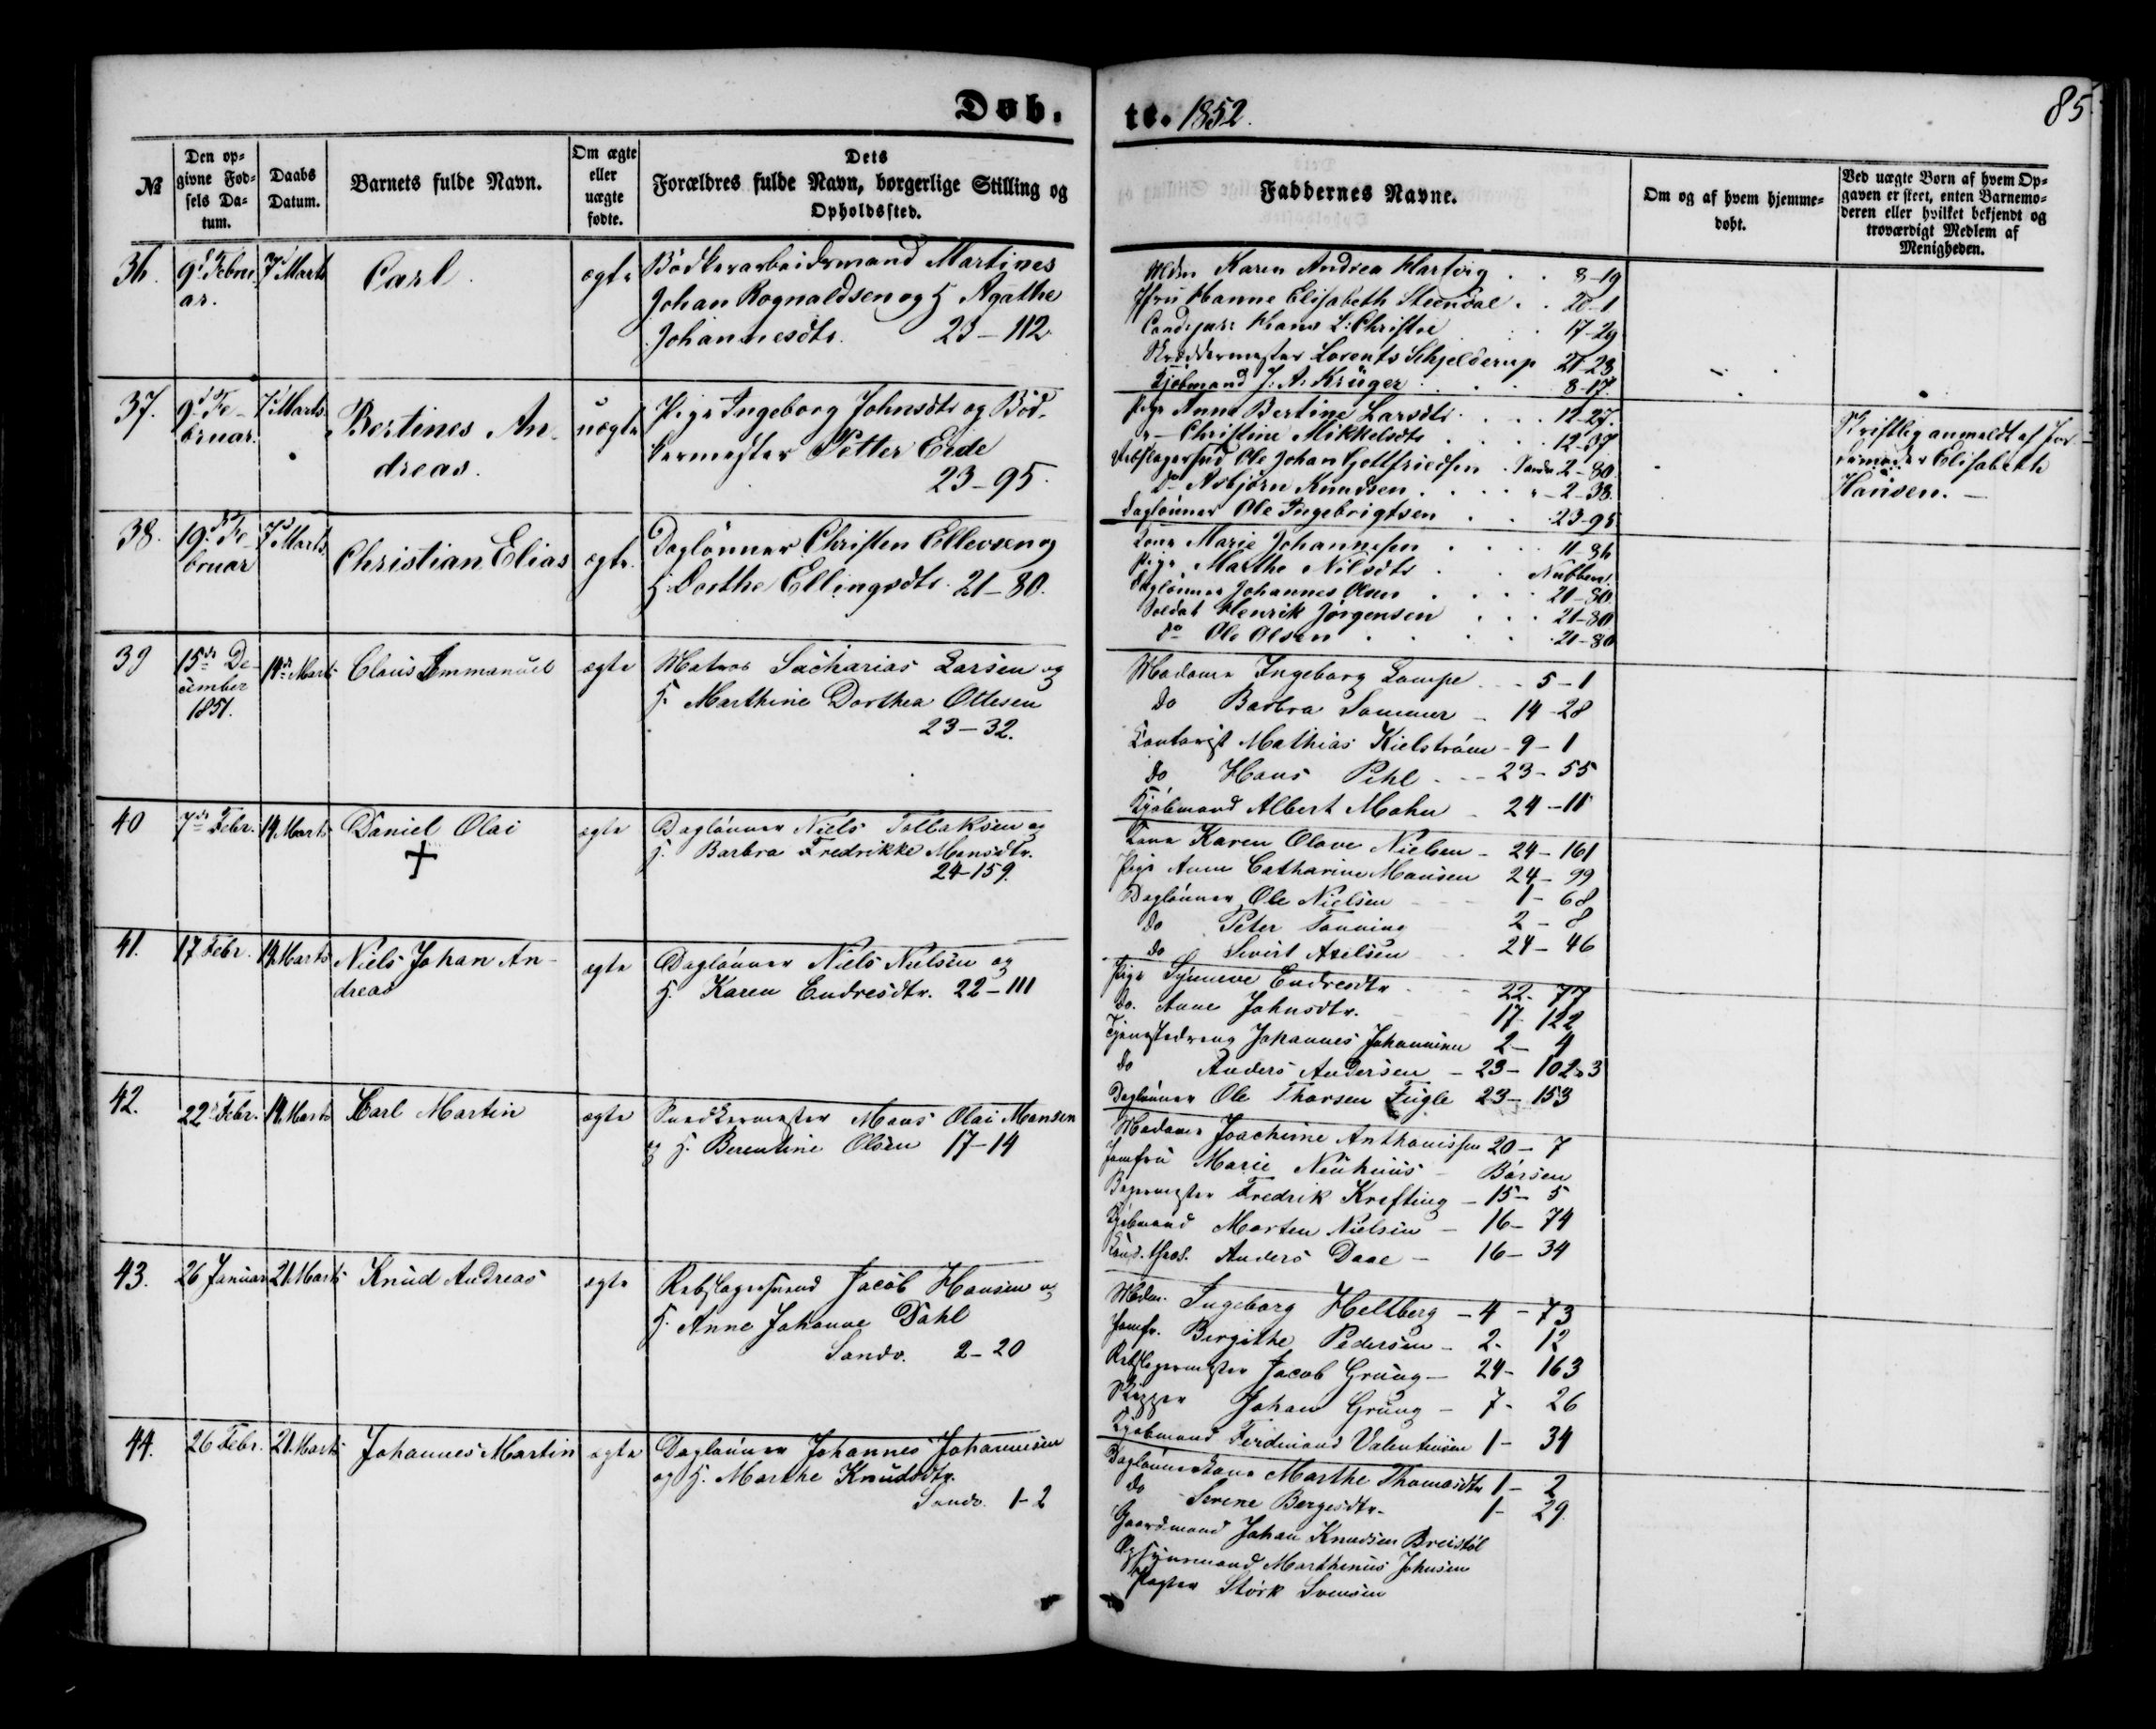 Døb.
te. 1852.
85.
№
Den op-
givne Fød-
sels Da-
tum.
Daabs
Datum.
Barnets fulde Navn.
Om ægte
eller
uægte
fødte.
Dets
Forældres fulde Navn, borgerlige Stilling og
Opholdssted.
Faddernes Navne.
Om og af hvem hjemme-
døbt.
Ved uægte Børn af hvem Op-
gaven er skeet, enten Barnemo-
deren eller hvilket bekjendt og
troværdigt Medlem af
Menigheden.
36. 9d Febru- 7d Marts Carl. ægte Bødkerarbeidsmand Martines
ar.
Johan Rognaldsen og H Agathe
Johannesdtr. 23-112
Mdm Karen Andrea Hartvig 8-19
Jfru Hanne Elisabeth Steendal 20-1
Cand. jur: Hans L: Christie 17-29
Skræddermester Lorents Schjelderup 21-23
Kjøbmand J: A: Krüger 8-17.
37. 9d Fe- 7d Marts. Bertines An- uægte Pige Ingeborg Johnsdtr og Bød-
bruar. dreas. kermester Petter Eide
23-95.
Pige Anna Bertine Larsdtr 12-27.
" - Christine Mikkelsdtr 12-37
Rebslagersvd Ole Johan Gottfriedsen Sandv 2-80.
do Asbjørn Knudsen " - 2-38.
Daglønner Ole Ingebrigtsen 23-95
Skriftlig anmeldt af Jor-
demoder Elisabeth
Hansen. -
38. 19d Fe- 7d Marts. Christian Elias ægte. Daglønner Christen Ellevsen og
bruar H Dorthe Ellingsdtr. 21-80.
Kone Marie Johannesen 11-86
Pige Marthe Nilsdtr Nubben.
Daglønner Johannes Olsen 20-80.
Soldat Henrik Jørgensen 21-80
do Ole Olsen 21-80
39 15de De- 14de Marts Claus Emmanuel ægte Matros Sacharias Larsen og
cember
1851.
H. Marthine Dorthea Ottesen
23-32.
Madame Ingeborg Lampe - 5-1
do Barbra Sommer - 14-28
Contorist Mathias Kielstrøm - 9-1
do Hans Pihl - 23-55
Kjøbmand Albert Mohn - 24-11
40 7de Febr. 14 Marts Daniel Olai ægte Daglønner Niels Tollaksen og
+ H. Barbra Fredrikke Monsdtr.
24-159.
Kone Karen Olave Nielsen - 24-161
Pige Anne Catharine Monsen 24-99
Daglønner Ole Nielsen 1-68
do Peter Tonning 2-8
do Sivert Axelsen 24-46
41. 17 Febr. 14 Marts Niels Johan An- ægte Daglønner Niels Nielsen og
dreas H. Karen Endresdtr. 22-111
Pige Synneve Endresdtr 22-77
do. Anne Johnsdtr. 17-122
Tjenestedreng Johannes Johannesen 2-4
do Anders Andersen - 23-102
Daglønner Ole Thorsen Fugle 23-153
42. 22 Febr. 14 Marts Carl Martin ægte Snedkermester Mons Olai Monsen
og H. Berentine Olsen 17-14
Madame Joachime Anthonissen 20-7
Jomfru Marie Neuhuus - Børsen
Bagermester Fredrik Krefting - 15-5
Kjøbmand Morten Nielsen - 16-74
Anders Daae - 16-34
43. 26 Januar 21 Marts Knud Andreas ægte Rebslagersvend Jacob Hansen og
H. Anne Johanne Dahl
Sandv. 2-20
Mdm. Ingeborg Heltberg - 4-73
Jomfr. Birgithe Pedersen - 2-12
Rebslagermester Jacob Grung - 24-163
Skipper Johan Grung - 7-26
Kjøbmand Ferdinand Valentinsen 1-34
44. 26 Febr. 21 Marts Johannes Martin ægte Daglønner Johannes Johannesen
og H. Marthe Knudsdtr.
Sandv. 1-2
Daglønnerkone Marthe Thomasdtr 1-2
do Serene Bergesdtr. 1-29.
Gaardmand Johan Knudsen Breistøl
Opsynsmand Marthinus Johnsen
Størk Svensen